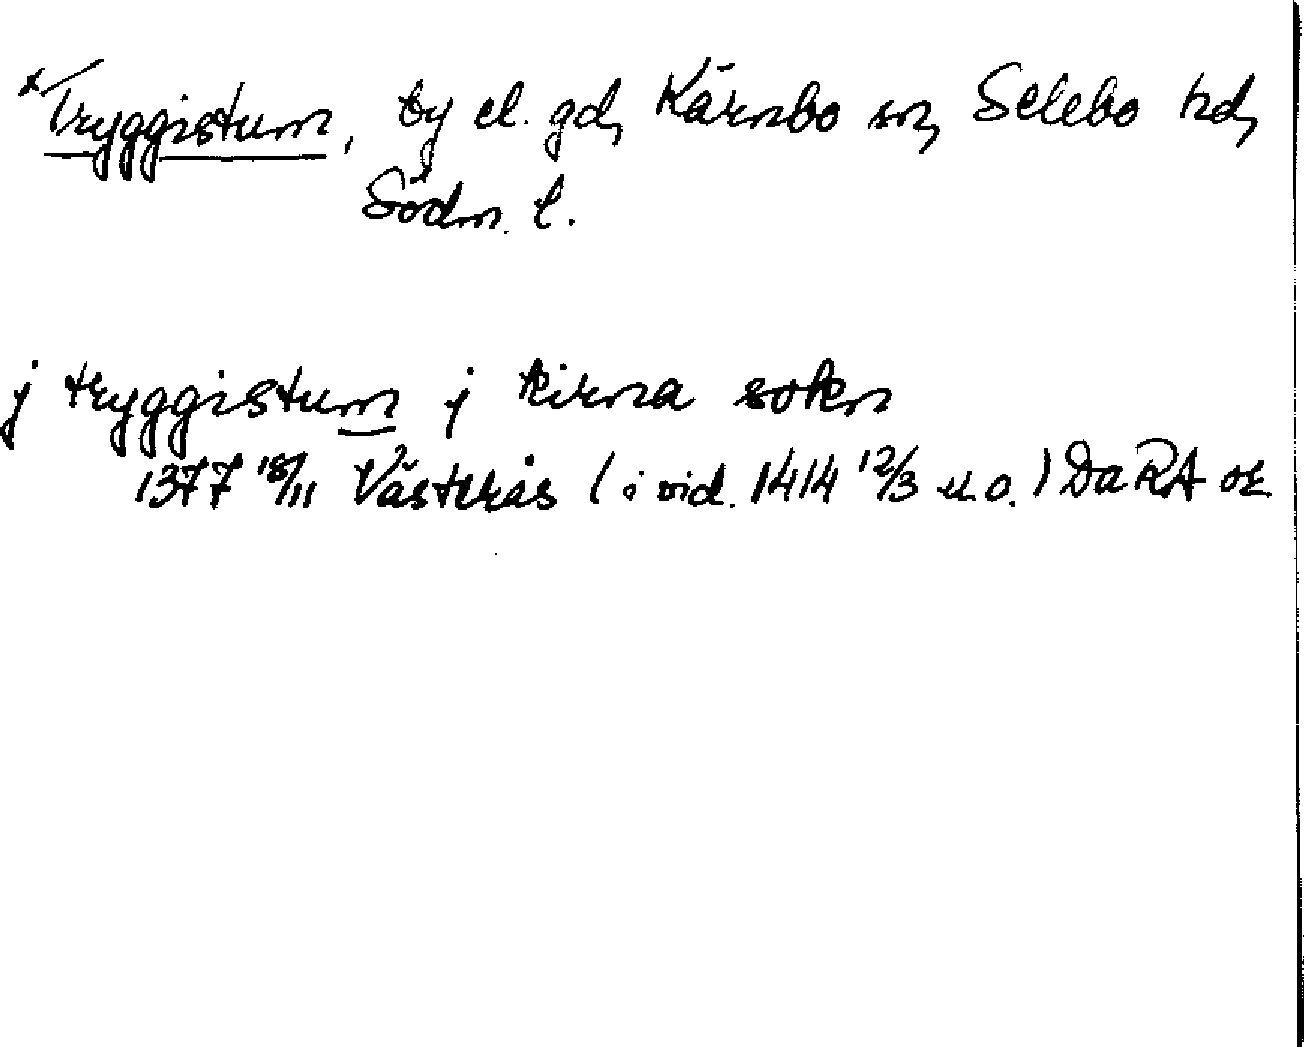 *Tryggistum, by el. gd, Kärnbo sn, Selebo hd,
Södm. l.
j tryggistum j kirna sokn
1377 18/11 Västerås (i vid. 1414 12/3 u.o.) DaRA or